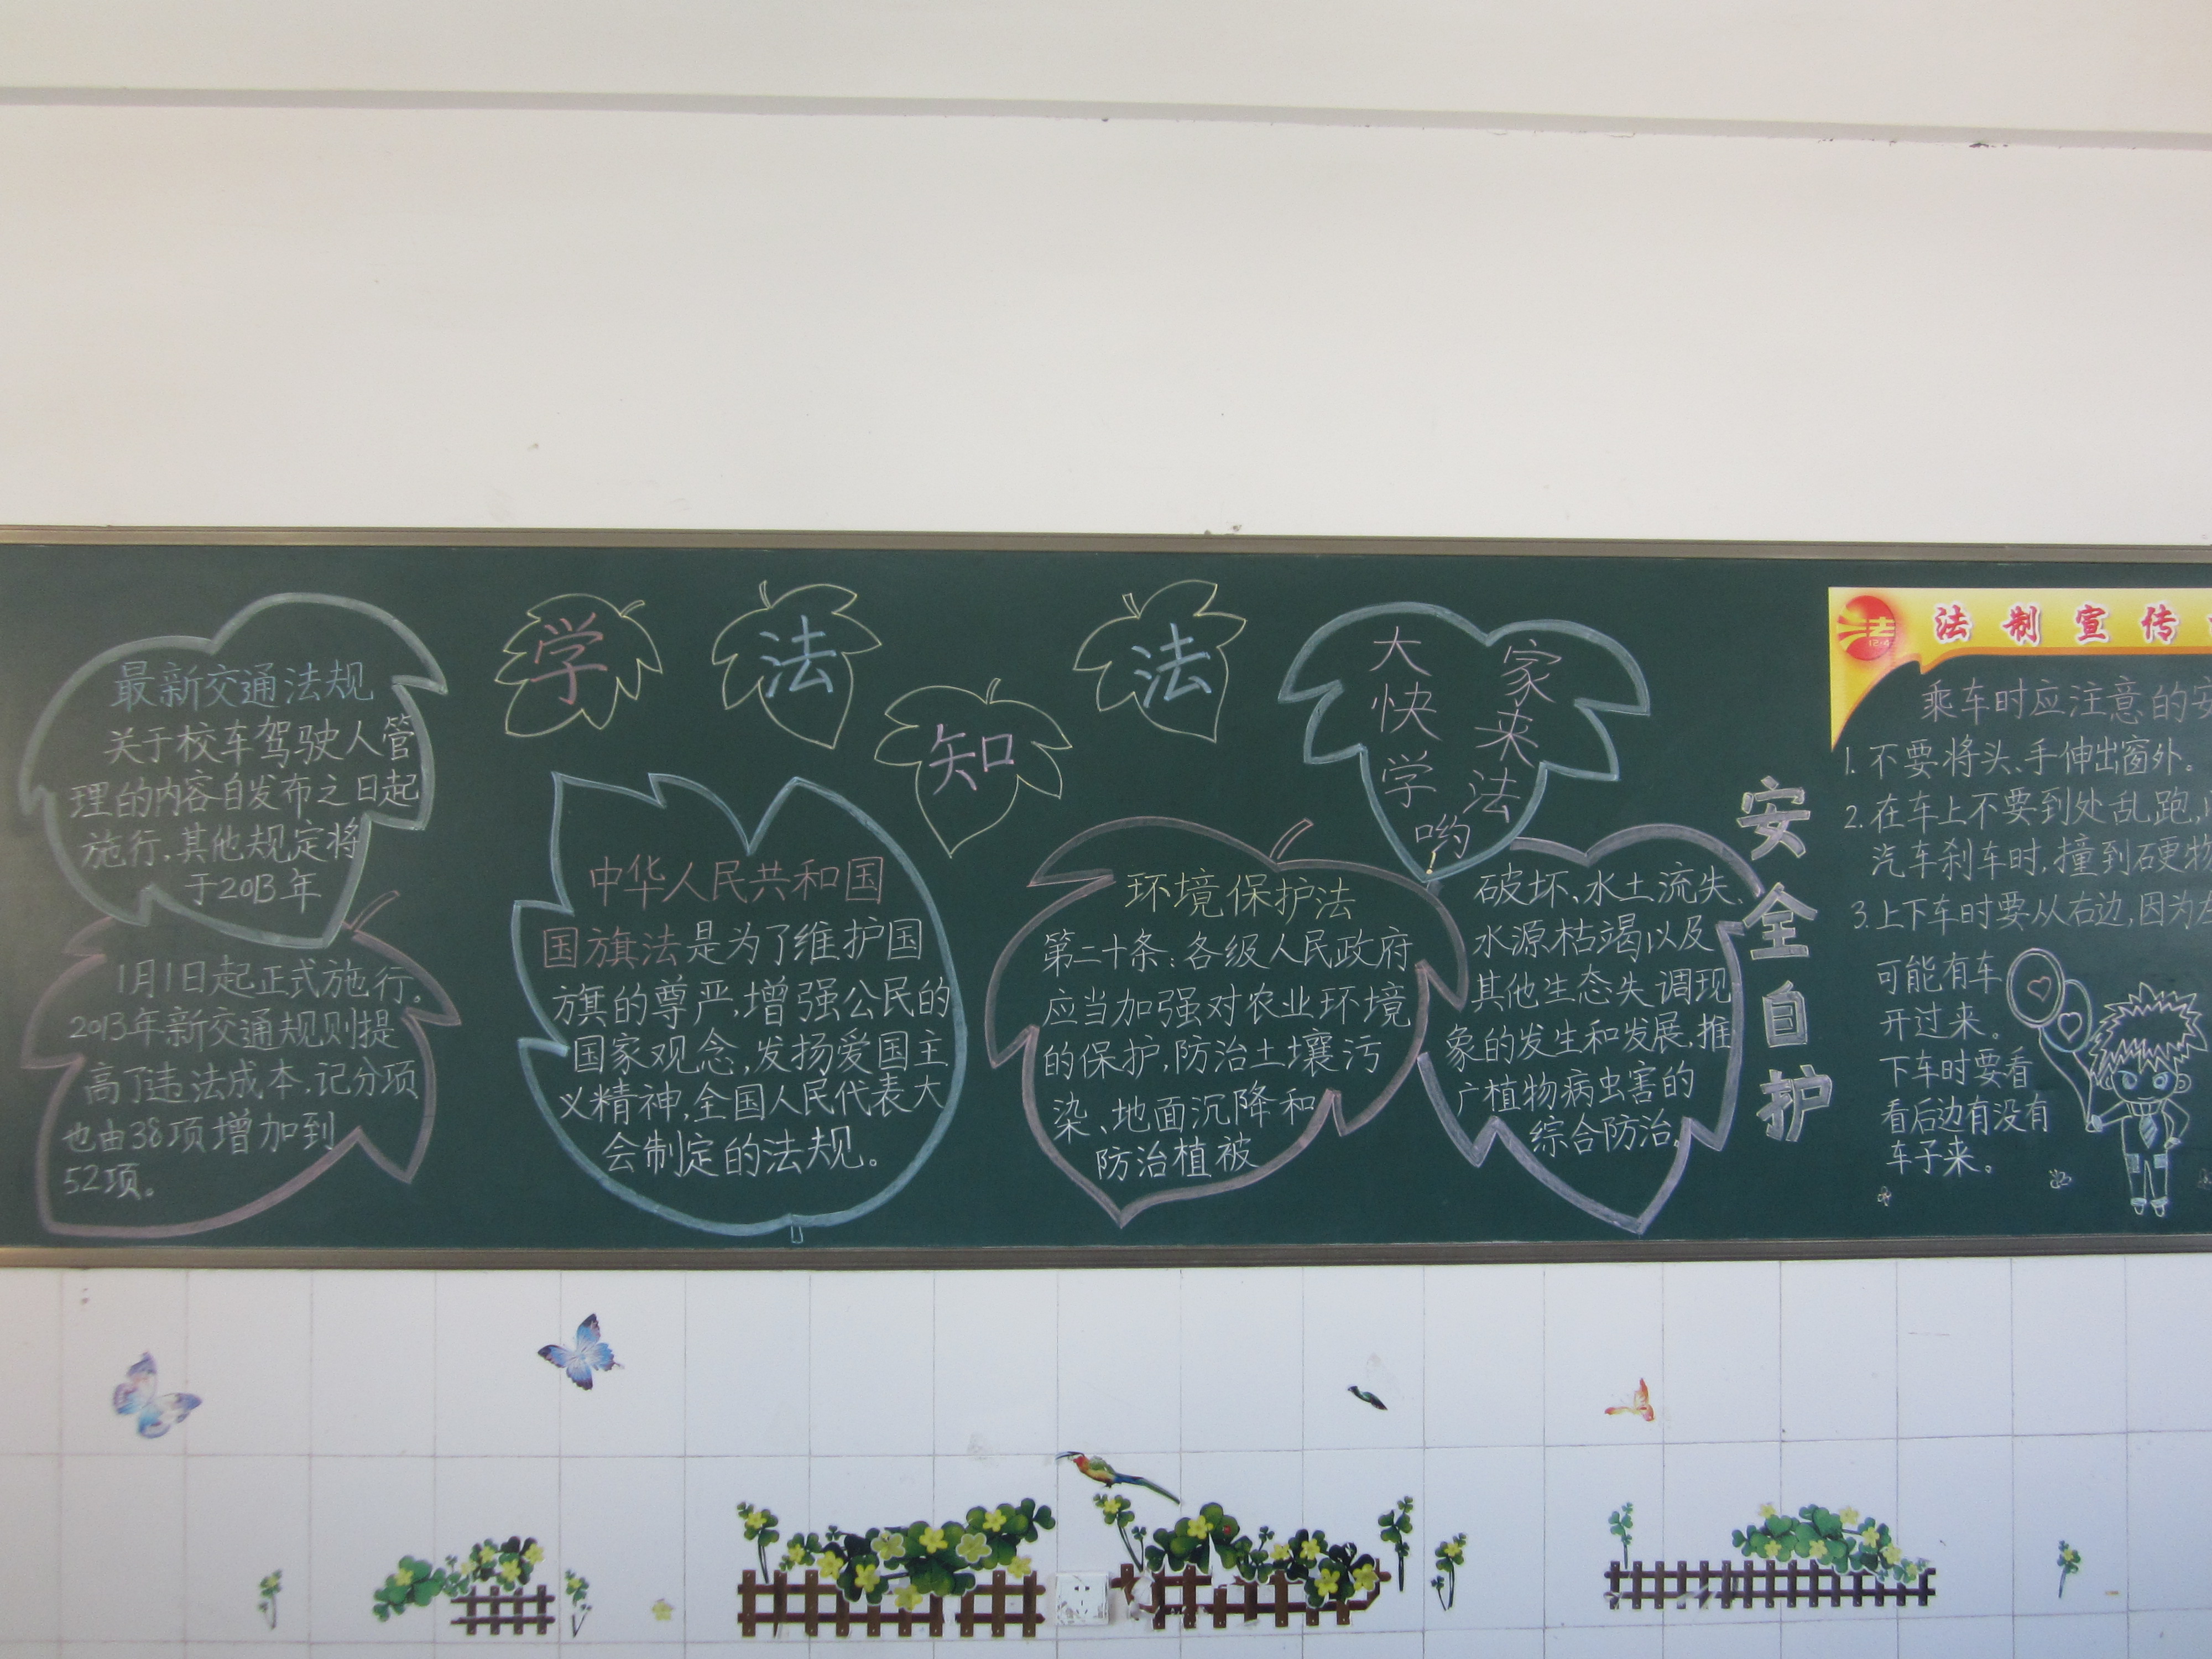 最新交通法规
关于校车驾驶人管
理的内容自发布之日起
施行,其他规定将
于2013年
1月1日起正式施行。
2013年新交通规则提
高了违法成本,记分项
也由38项增加到
52项。
学法知法
中华人民共和国
国旗法是为了维护国
旗的尊严,增强公民的
国家观念,发扬爱国主
义精神,全国人民代表大
会制定的法规。
大家
快来
学法
哟!
环境保护法
第二十条:各级人民政府
应当加强对农业环境
的保护,防治土壤污
染、地面沉降和
防治植被
破坏、水土流失、
水源枯竭以及
其他生态失调现
象的发生和发展,推
广植物病虫害的
综合防治。
安全自护
法
12·4
法制宣传
乘车时应注意的安
1.不要将头、手伸出窗外。
2.在车上不要到处乱跑,
汽车刹车时,撞到硬物
3.上下车时要从右边,因为
可能有车
开过来。
下车时要看
看后边有没有
车子来。